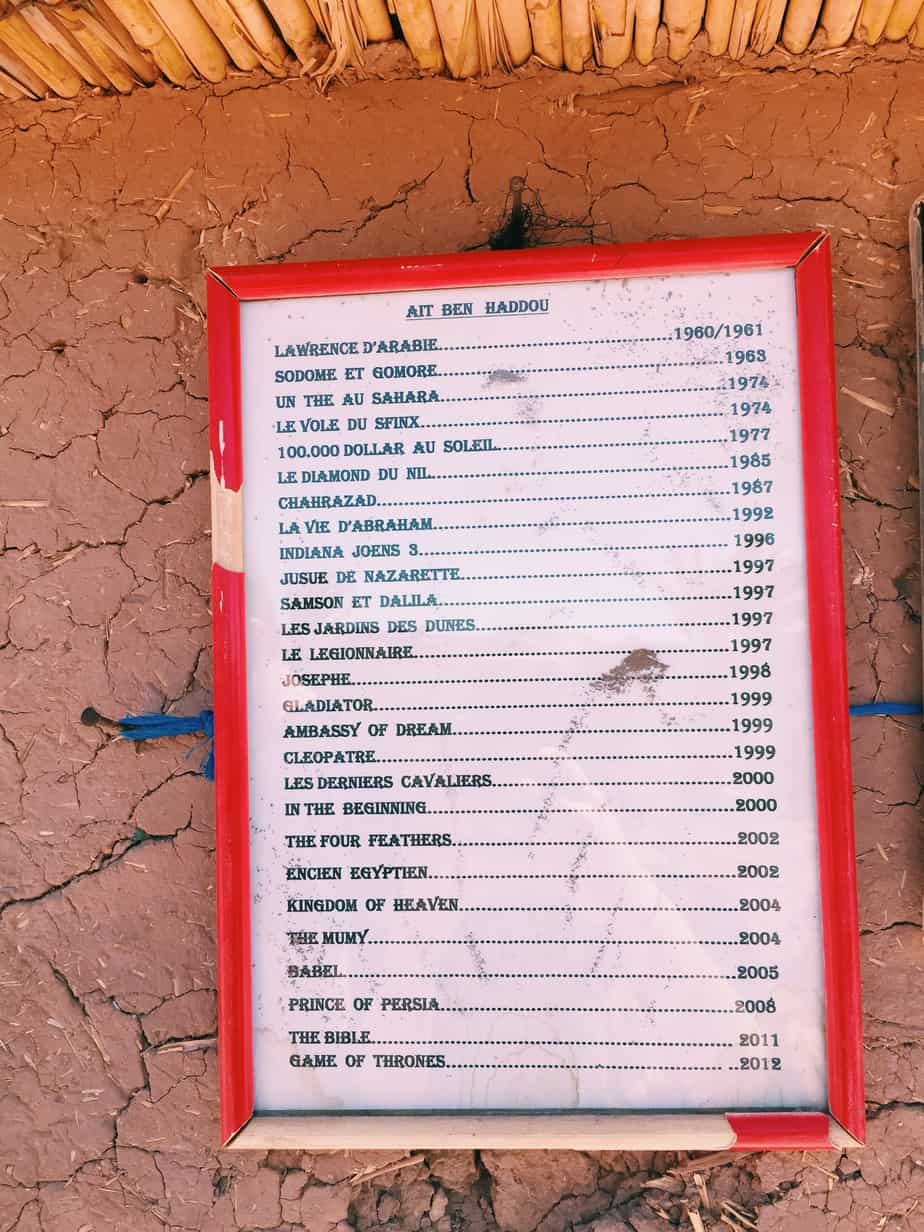 AIT BEN HADDOU
LAWRENCE D'ARABIE...1960/1961
SODOME ET GOMORE...1963
UN THE AU SAHARA...1974
LE VOLE DU SFINX...1974
100.000 DOLLAR AU SOLEIL...1977
LE DIAMOND DU NIL...1985
CHAHRAZAD...1987
LA VIE D'ABRAHAM...1992
INDIANA JOENS 3...1996
JUSUE DE NAZARETTE...1997
SAMSON ET DALILA...1997
LES JARDINS DES DUNES...1997
LE LEGIONNAIRE...1997
JOSEPHE...1998
GLADIATOR...1999
AMBASSY OF DREAM...1999
CLEOPATRE...1999
LES DERNIERS CAVALIERS...2000
IN THE BEGINNING...2000
THE FOUR FEATHERS...2002
ENCIEN EGYPTIEN...2002
KINGDOM OF HEAVEN...2004
THE MUMY...2004
BABEL...2005
PRINCE OF PERSIA...2008
THE BIBLE...2011
GAME OF THRONES...2012